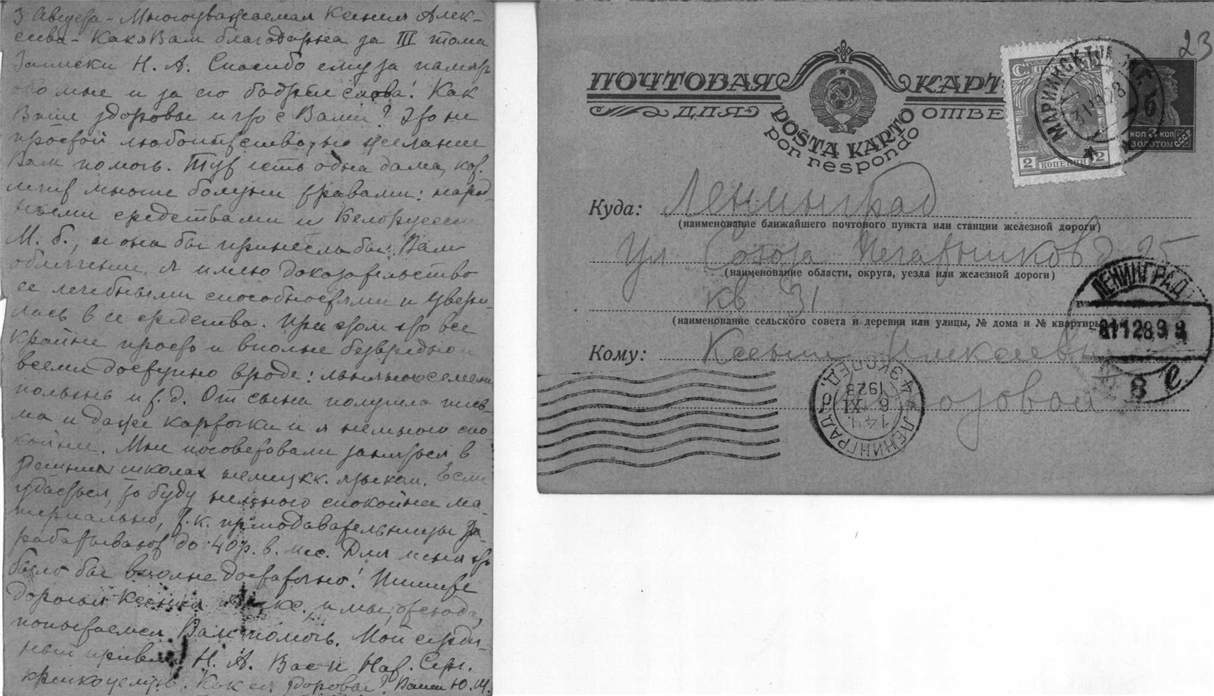 3 Августа - Многоуважаемая Ксения Алек-
еевна - Как я Вам благодарна за III тома
Записки Н. А. Спасибо ему за память
обо мне и за его бодрые слова! Как
Ваше здоровье и что с Вами? Это не
простой любопытство, но желание
Вам помочь. Тут есть одна дама, кот.
лечит многие болезни травами: народ-
ными средствами из Белоруссии
М. б., и она бы принесла бы Вам
облегчение. Я имею доказательство
ее лечебными способностями и увери-
лась в ее средства. При этом это все
крайне просто и вполне безвредно и
всем доступно вроде: льняное семени
полынь и т. д. От сына получила пись-
ма и даже карточки и я немного спо-
койнее. Мне посоветовали заняться в
школах немецк. языком. Если
удастся, то буду немного спокойнее ма-
териально, т. к. преподавательницы за-
рабатывают до 40 р. в мес. Для меня это
было бы вполне достаточно! Пишите
дорогая Ксения Алекс., и мы, отсюда,
попытаемся Вам помочь. Мой сердеч-
ный привет Н. А. Вас и Нат. Серг.
крепко целую. Как ея здоровье? Ваша Ю. Ш.
23
ПОЧТОВАЯ КАРТ
ДЛЯ ОТВЕ
POŜTA KARTO
por respondo
2 КОПЕЙКИ 2
КОП 3 КОП
ЗОЛОТОМ
МАРИИНСК ТОМ.
Куда: Ленинград
(наименование ближайшего почтового пункта или станции железной дороги)
Ул Союза Печатников 25
(наименование области, округа, уезда или железной дороги)
кв 31
(наименование сельского совета и деревни или улицы, № дома и № квартиры
ЛЕНИНГРАД
8
Кому: Ксении Алексеевны
озовой
ЛЕНИНГРАД
14 Ч.
6 XI
1928
4 ЭКСПЕД.